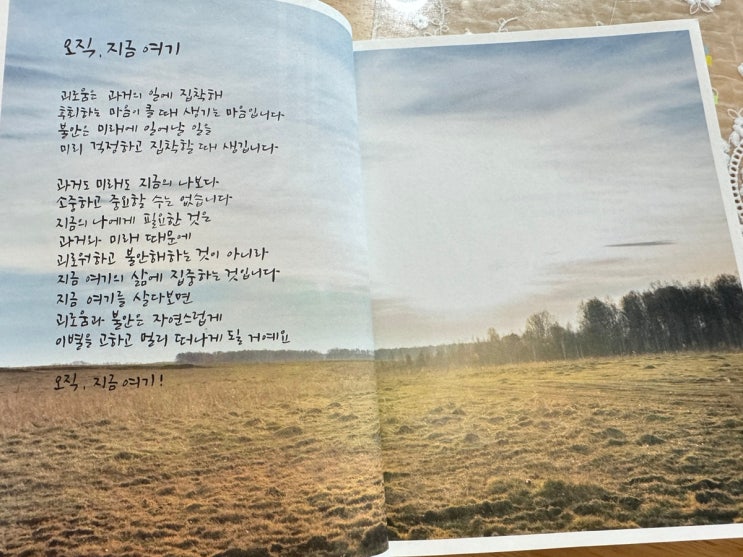 오직, 지금 여기
괴로움은 과거의 일에 집착해
후회하는 마음이 클 때 생기는 마음입니다
불안은 미래에 일어날 일을
미리 걱정하고 집착할 때 생깁니다
과거도 미래도 지금의 나보다
소중하고 중요할 수는 없습니다
지금의 나에게 필요한 것은
과거와 미래 때문에
괴로워하고 불안해하는 것이 아니라
지금 여기의 삶에 집중하는 것입니다
지금 여기를 살다보면
괴로움과 불안은 자연스럽게
이별을 고하고 멀리 떠나게 될 거예요
오직, 지금 여기!